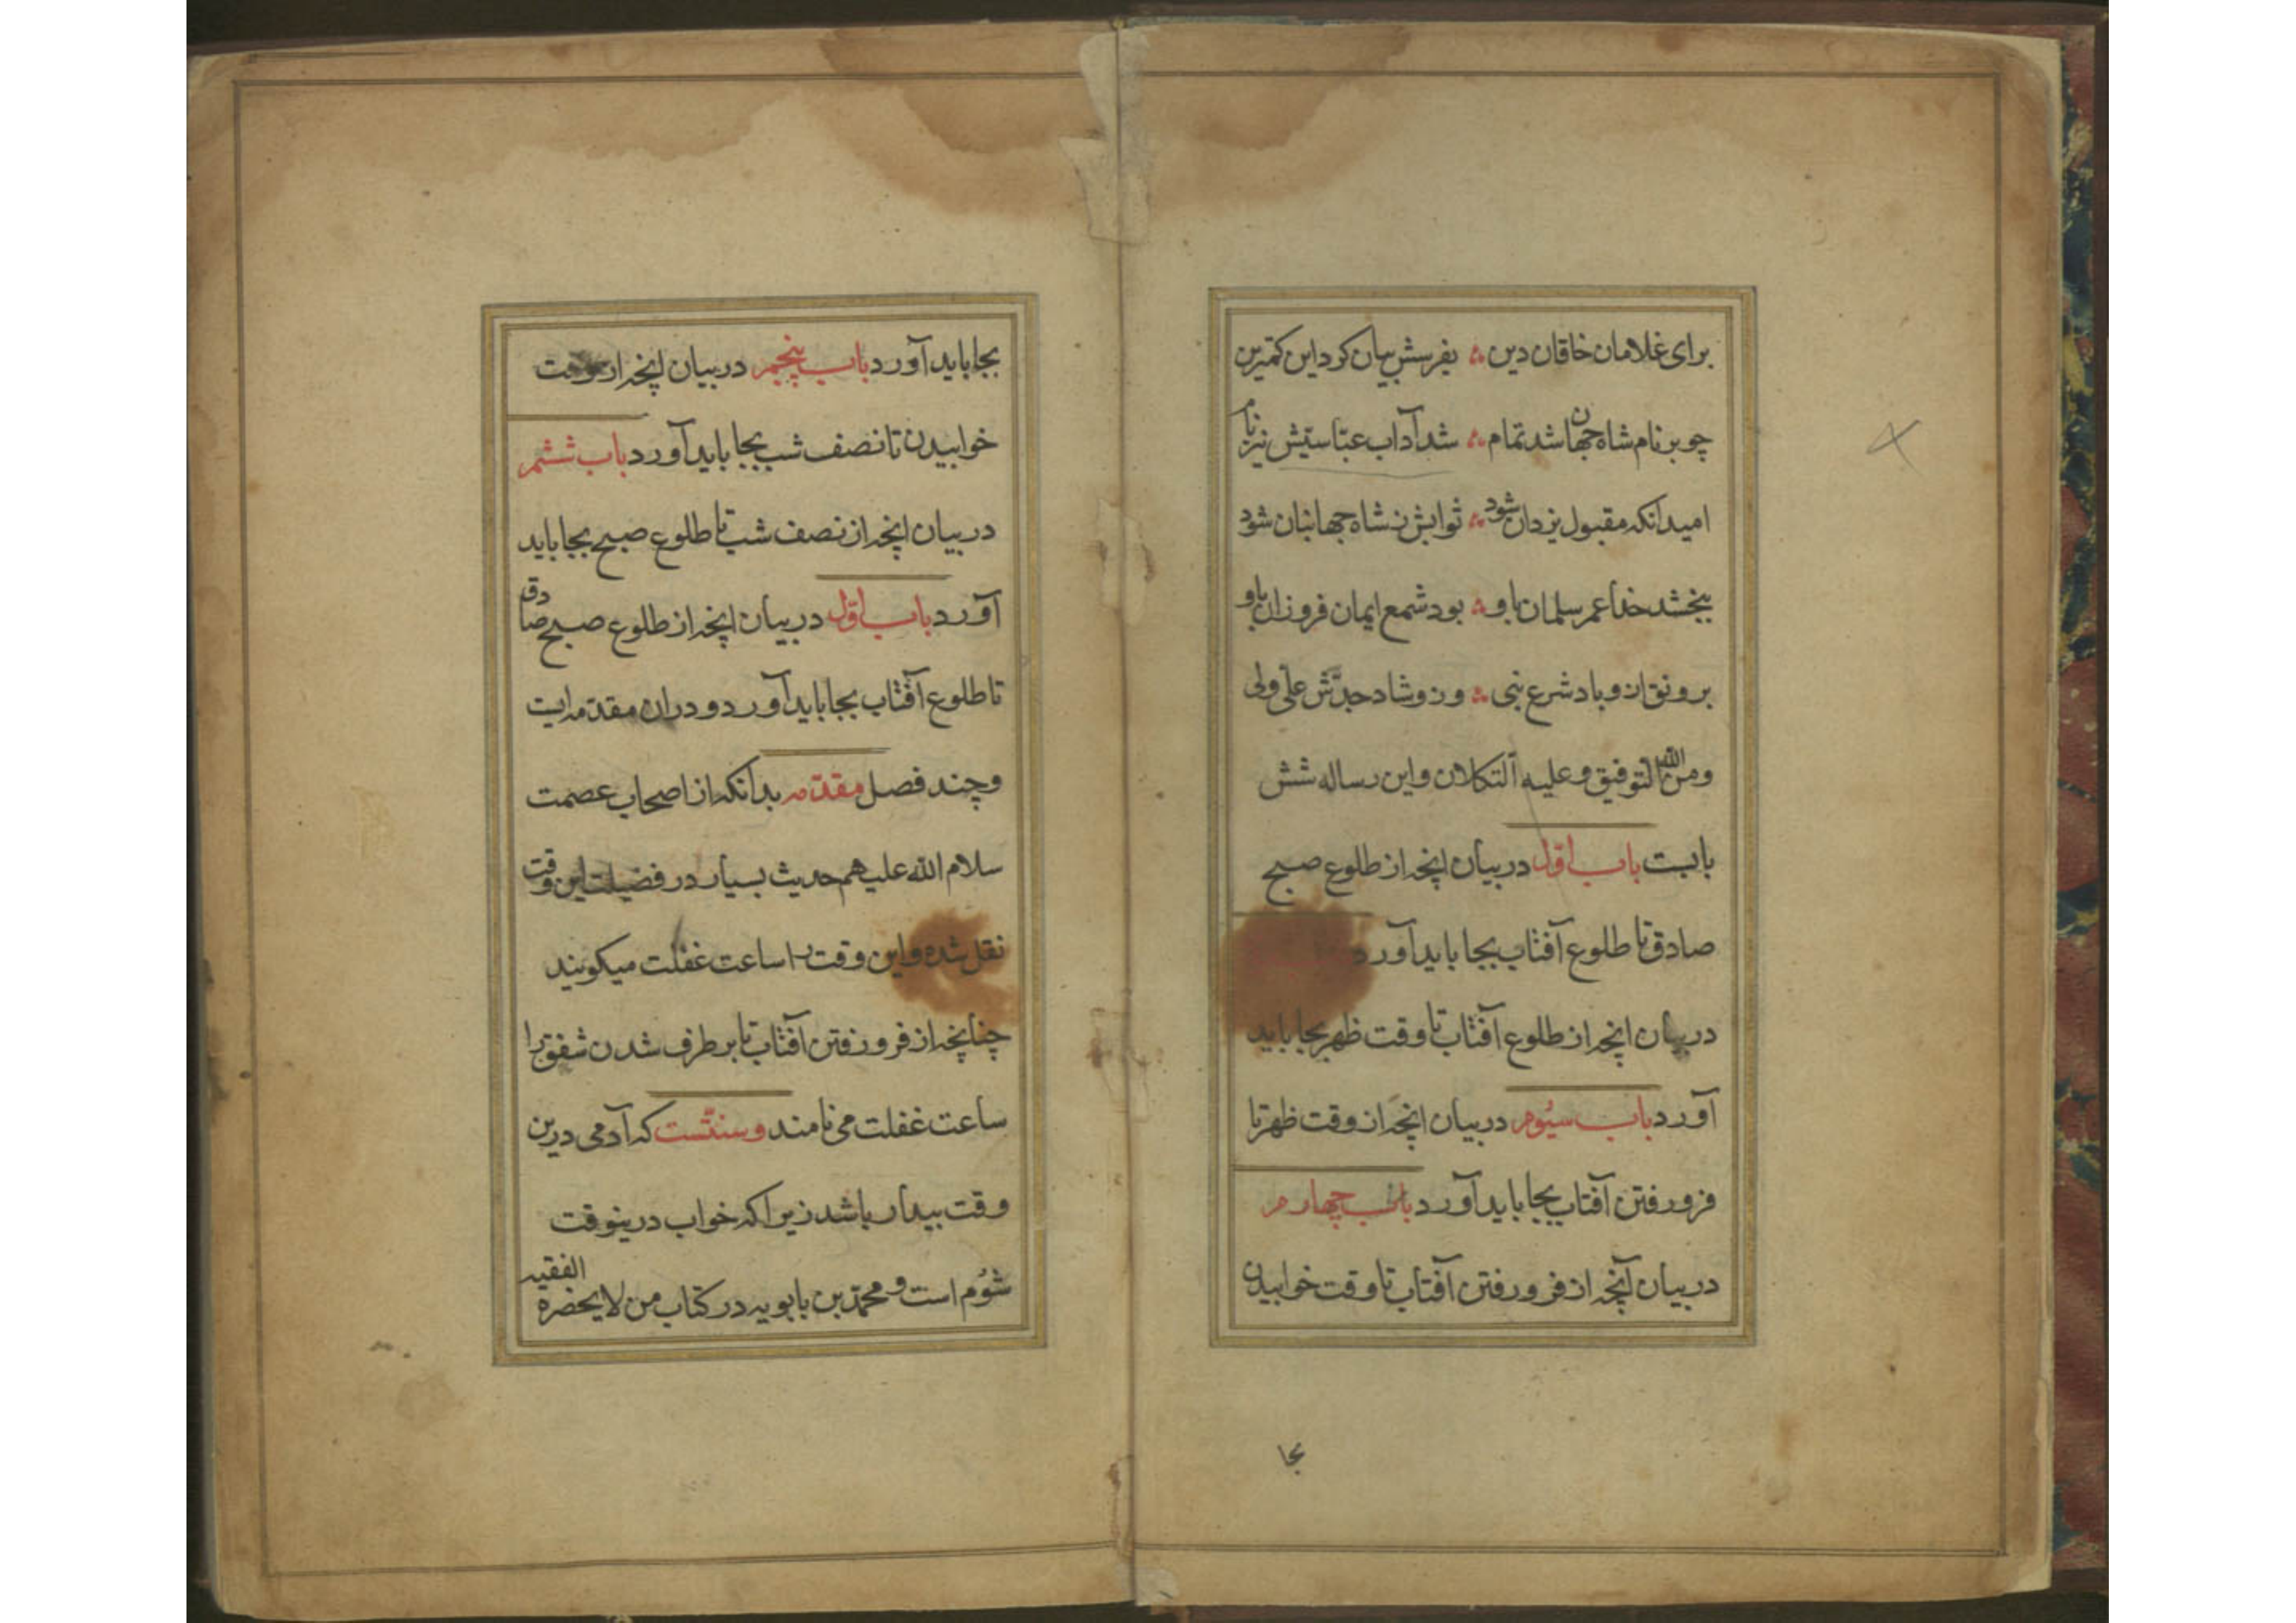 برای غلامان خاقان دین ؞ بفرسش بیان کرد این کمترین
چو بر نام شاه جهان شد تمام ؞ شد آداب عبّاسیّش نیز نام
امید آنکه مقبول یزدان شود ؞ ثوابش ز شاه جهانبان شود
ببخشد خدا عمر سلمان باو ؞ بود شمع ایمان فروزان باو
برونق ازو باد شرع نبی ؞ وزو شاد جدّش علّی ولی
ومن الله التوفیق وعلیه التکلان و این رساله شش
بابست باب اوّل در بیان انچه از طلوع صبح
صادق تا طلوع آفتاب بجا باید آورد
در بیان انچه از طلوع آفتاب تا وقت ظهر بجا باید
آورد باب سیُوم در بیان انچه از وقت ظهر تا
فرو رفتن آفتاب بجا باید آورد باب چهارم
در بیان آنچه از فرو رفتن آفتاب تا وقت خوابیدن
بجا
بجا باید آورد باب پنجم در بیان انچه از وقت
خوابیدن تا نصف شب بجا باید آورد باب ششم
در بیان انچه از نصف شب تا طلوع صبح بجا باید
آورد باب اوّل در بیان انچه از طلوع صبح صادق
تا طلوع آفتاب بجا باید آورد و دران مقدّمه ایت
و چند فصل مقدّمه بدانکه از اصحاب عصمت
سلام الله علیهم حدیث بسیار در فضیلت این وقت
نقل شده و این وقت را ساعت غفلت میکویند
چنانچه از فرو رفتن آفتاب تا بر طرف شدن شفق را
ساعت غفلت می نامند و سنتّست که آدمی درین
وقت بیدار باشد زیرا که خواب درینوقت
شُوم است و محمّد بن بابویه در کتاب من لا یحضره الفقیه